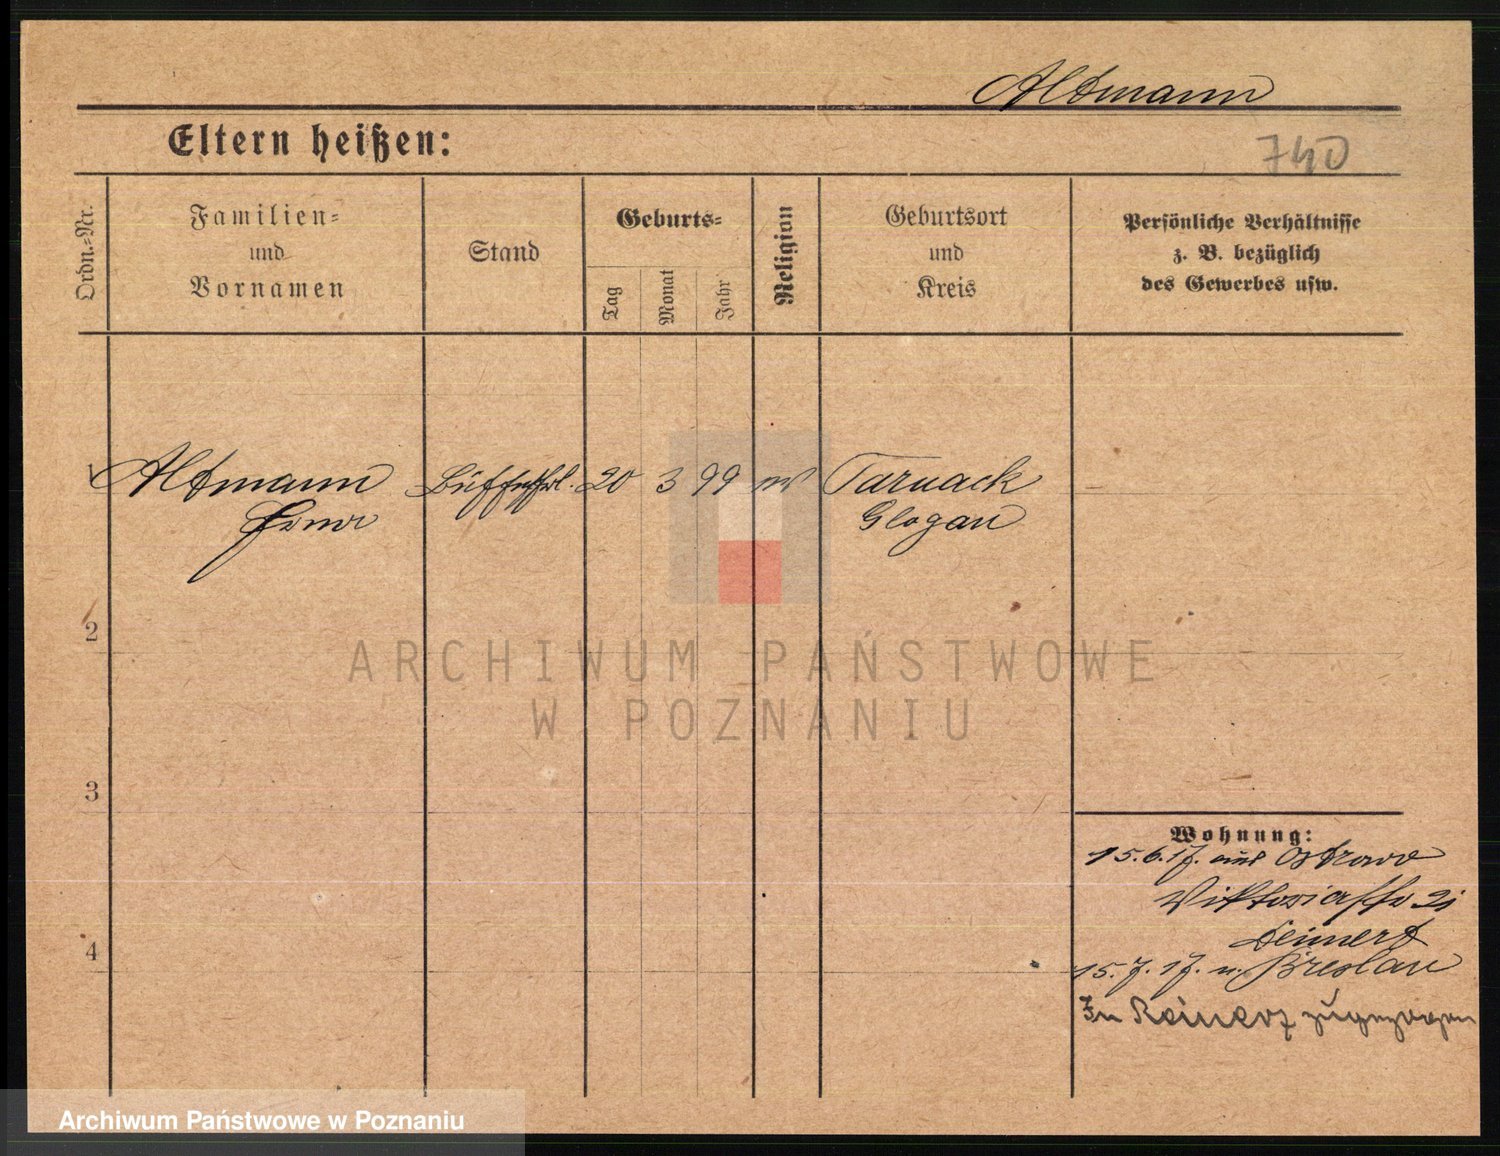 Altmann
Eltern heißen:
740
Ordn.-Nr.
Familien-
und
Vornamen
Stand
Geburts-
Tag
Monat
Jahr
Religion
Geburtsort
und
Kreis
Persönliche Verhältnisse
z. B. bezüglich
des Gewerbes usw.
Altmann Büffetfrl. 20 3 99 Tarnack
Erna Glogau
2
ARCHIWUM PAŃSTWOWE
W POZNANIU
3
Wohnung:
15.6.17. aus Ostrowo
Viktoriastr
15.7.17. n. Breslau
4
In Reinerz zugezogen
Archiwum Państwowe w Poznaniu